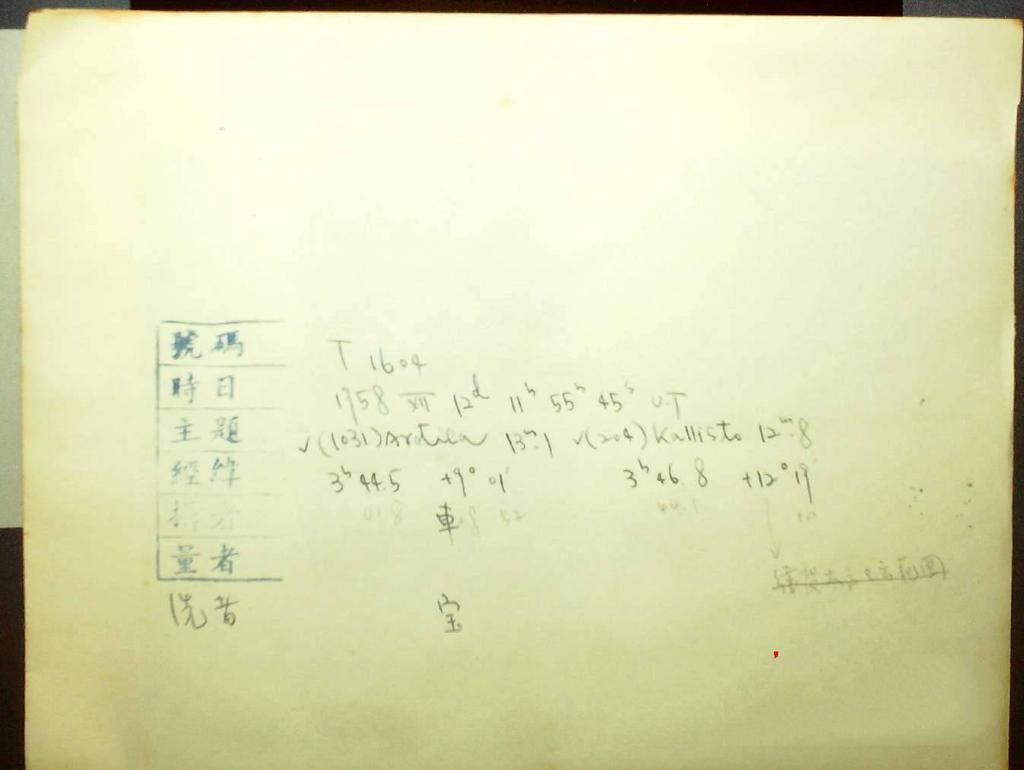 號碼 T 1604
時日 1958 XII 12ᵈ 11ʰ 55ᵐ 45ˢ U.T
主題 √(1031) Arctica 13ᵐ.1 √(204) Kallisto 12ᵐ.8
經緯 3ʰ 44.5 +9° 01' 3ʰ 46.8 +12° 19'
車
量者
洗者 宝